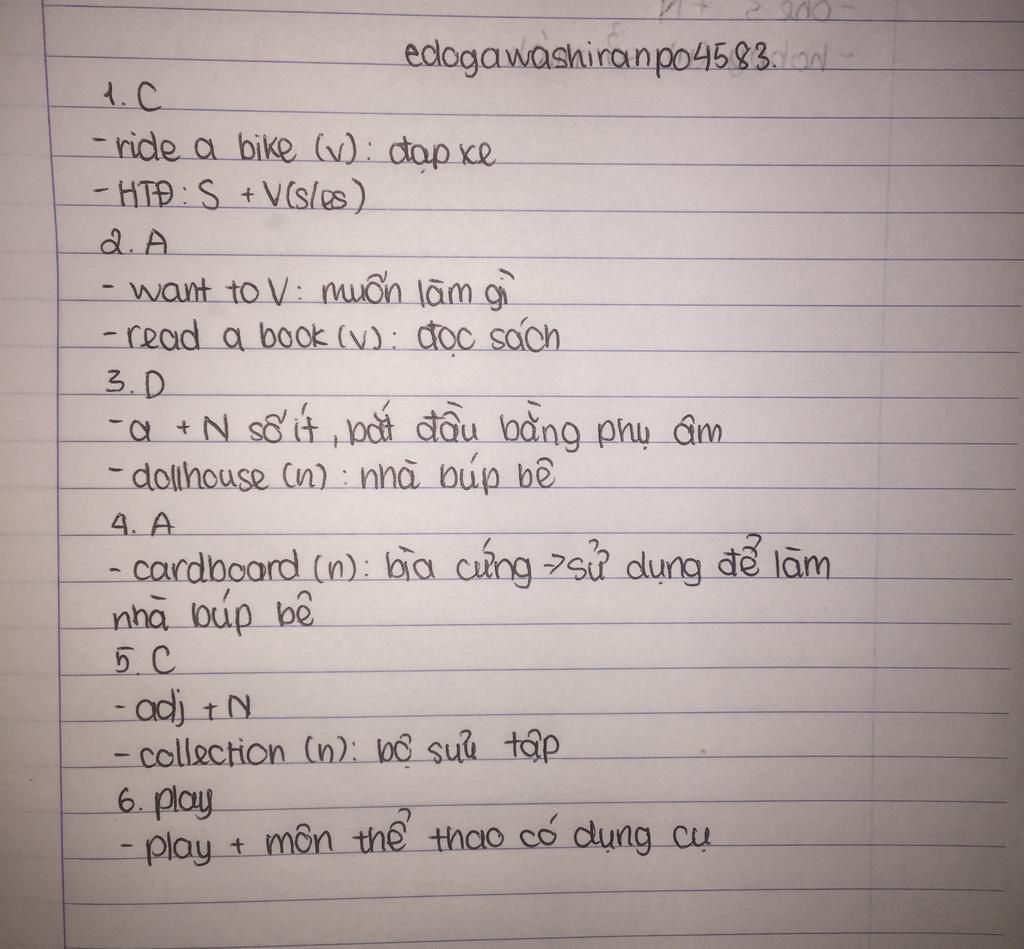 edogawashiranpo4583.
1. C
- ride a bike (v): đạp xe
- HTĐ: S + V(s/es)
2. A
- want to V: muốn làm gì
- read a book (v): đọc sách
3. D
- a + N số ít, bắt đầu bằng phụ âm
- dollhouse (n): nhà búp bê
4. A
- cardboard (n): bìa cứng → sử dụng để làm
nhà búp bê
5. C
- adj + N
- collection (n): bộ sưu tập
6. play
- play + môn thể thao có dụng cụ